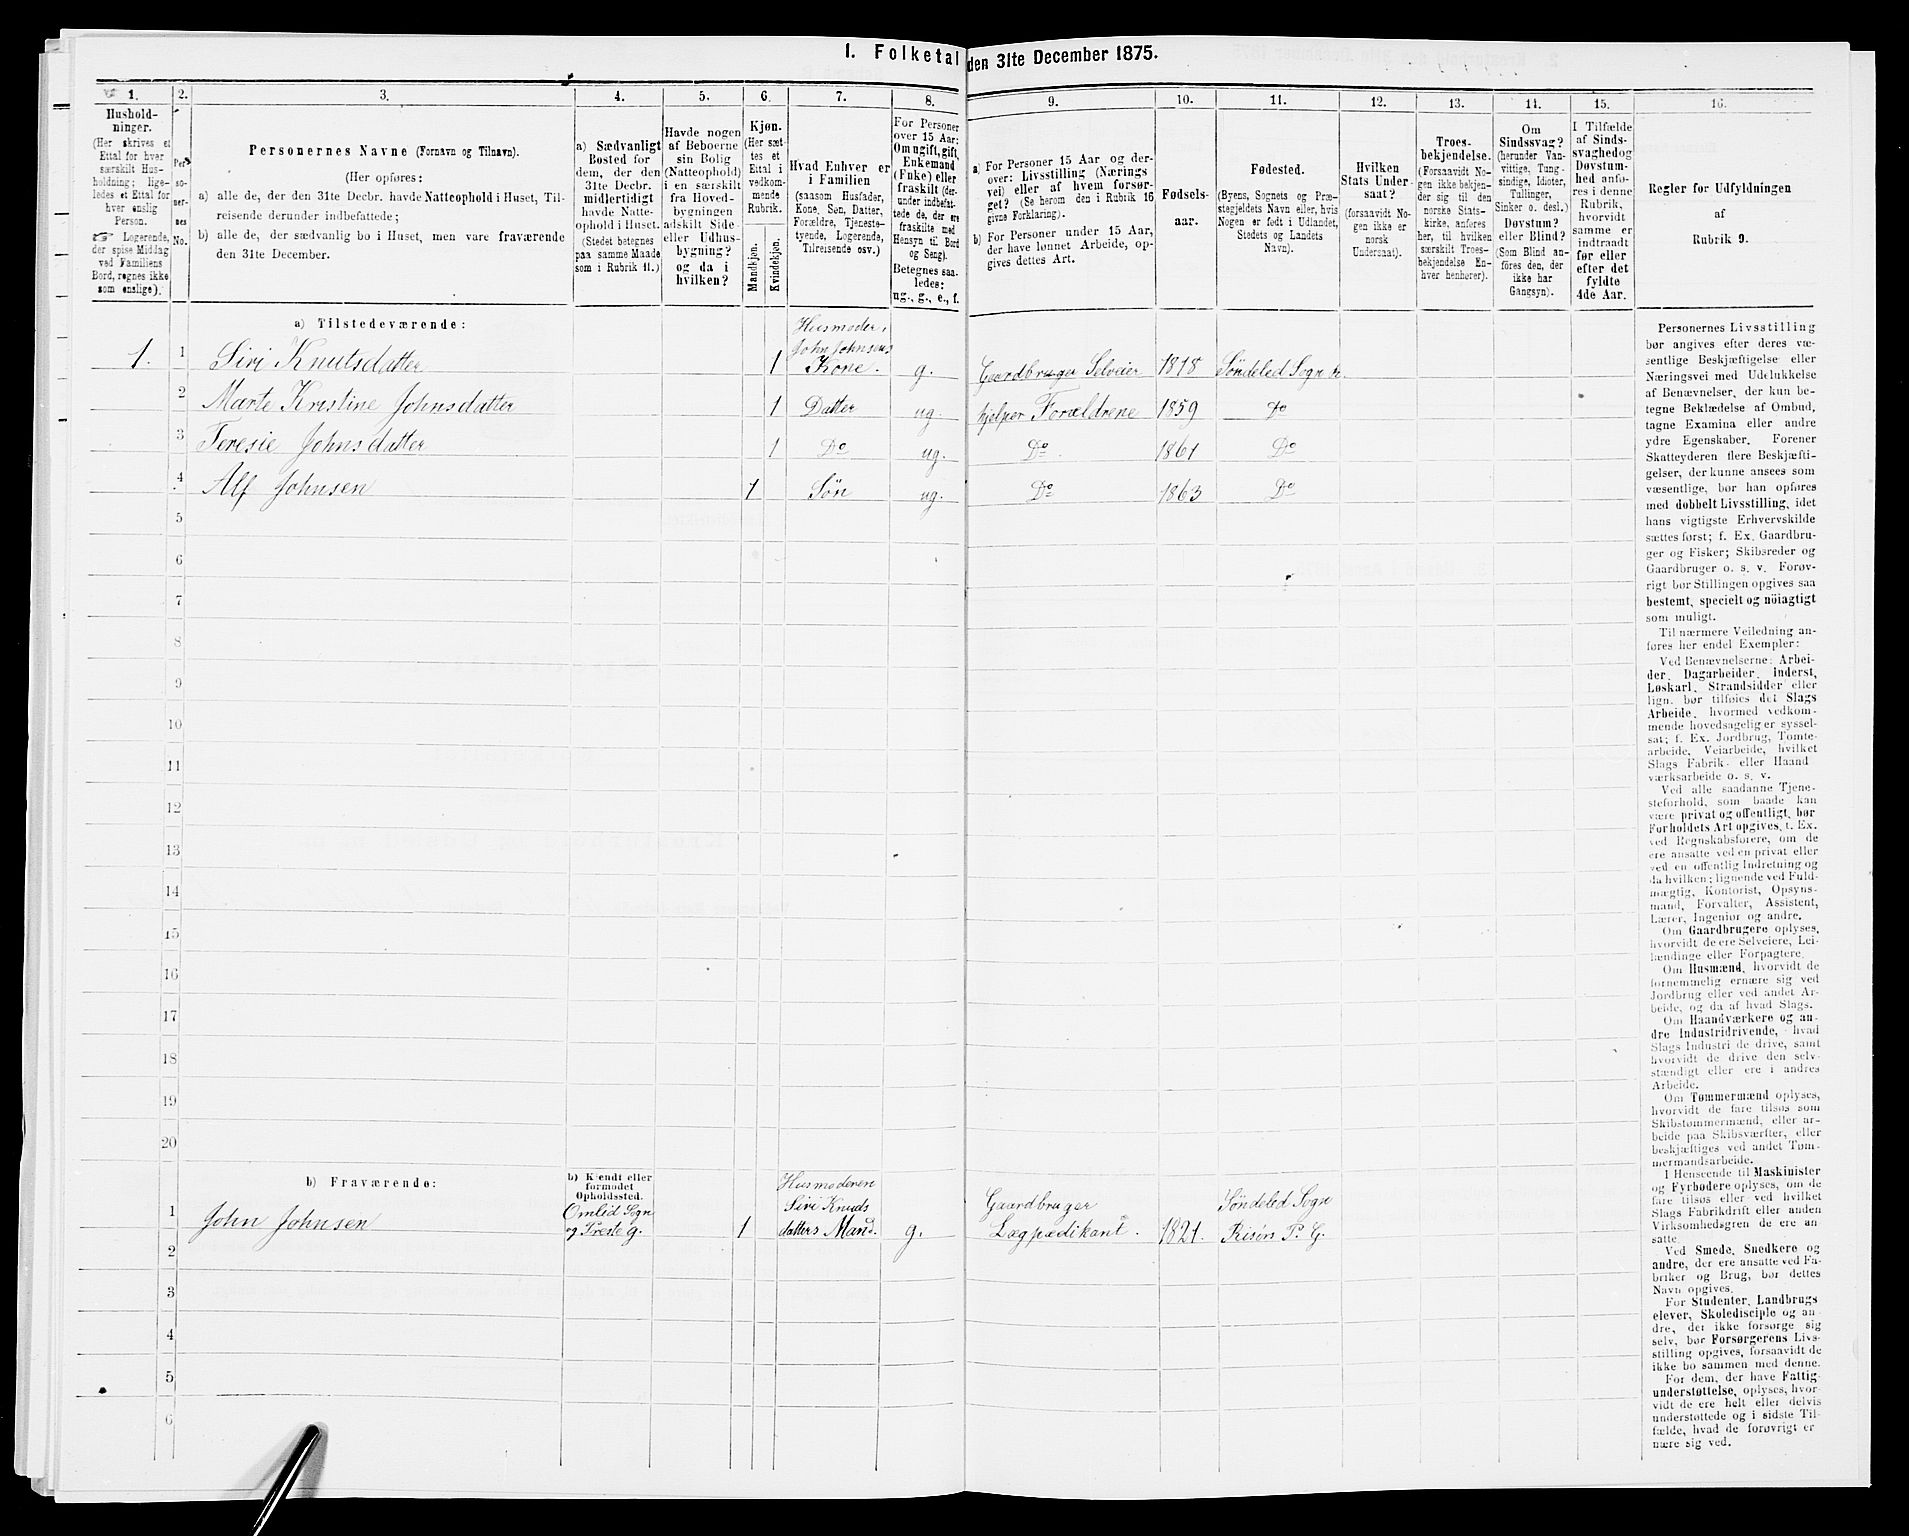 1. Folketal den 31te December 1875.
1. 2. 3. 4. 5. 6. 7. 8. 9. 10. 11. 12. 13. 14. 15. 16.
Hushold-
ninger.
(Her skrives et
Ettal for hver
særskilt Hus-
holdning; lige-
ledes et Ettal for
hver enslig
Person.
☞ Logerende,
der spise Middag
ved Familiens
Bord, regnes ikke
som enslige).
Per-
so-
ner-
nes
No.
Personernes Navne (Fornavn og Tilnavn).
(Her opføres:
a) alle de, der den 31te Decbr. havde Natteophold i Huset, Til-
reisende derunder indbefattede;
b) alle de, der sædvanlig bo i Huset, men vare fraværende
den 31te December.
a) Sædvanligt
Bosted for
dem, der den
31te Decbr.
midlertidigt
havde Natte-
ophold i Huset.
(Stedet betegnes
paa samme Maade
som i Rubrik 11.)
Havde nogen
af Beboerne
sin Bolig
(Natteophold)
i en særskilt
fra Hoved-
bygningen
adskilt Side-
eller Udhus-
bygning?
og da i
hvilken?
Kjøn.
(Her sæt-
tes et
Ettal i
vedkom-
mende
Rubrik.
Mandkjøn.
Kvindekjøn.
Hvad Enhver er
i Familien
(saasom Husfader,
Kone, Søn, Datter,
Forældre, Tjeneste-
tyende, Logerende,
Tilreisende osv.)
For Personer
over 15 Aar:
Om ugift, gift,
Enkemand
(Enke) eller
fraskilt (der-
under indbefat-
tede de, der ere
fraskilte med
Hensyn til Bord
og Seng).
Betegnes saa-
ledes:
ug., g., e., f.
a) For Personer 15 Aar og der-
over: Livsstilling (Nærings
vei) eller af hvem forsør-
get? (Se herom den i Rubrik 16
givne Forklaring).
b) For Personer under 15 Aar,
der have lønnet Arbeide, op-
gives dettes Art.
Fødsels-
aar.
Fødested.
(Byens, Sognets og Præ-
stegjeldets Navn eller, hvis
Nogen er født i Udlandet,
Stedets og Landets
Navn).
Hvilken
Stats Under-
saat?
(forsaavidt No-
gen ikke er
norsk
Undersaat).
Troes-
bekjendelse.
(Forsaavidt No-
gen ikke bekjen-
der sig til den
norske Stats-
kirke, anføres
her, til hvilken
særskilt Troes-
bekjendelse En-
hver henhører).
Om
Sindssvag?
(herunder Van-
vittige, Tung-
sindige, Idioter,
Tullinger,
Sinker o. desl.)
Døvstum?
eller Blind?
(Som Blind an-
føres den, der
ikke har
Gangsyn).
I Tilfælde
af Sinds-
svaghed og
Døvstum-
hed anfø-
res i denne
Rubrik,
hvorvidt
samme er
indtraadt
før eller
efter det
fyldte
4de Aar.
Regler for Udfyldningen
af
Rubrik 9.
a) Tilstedeværende:
1. 1 Siri Knutsdatter 1 Husmoder, John Johnsens Kone. g. Gaardbruger Selveier 1818 Søndeled Sogn
2 Marte Kristine Johnsdatter 1 Datter ug. hjelper Forældrene 1859 Do
3 Teresie Johnsdatter 1 Do ug. Do 1861 Do
4 Alf Johnsen 1 Søn ug. Do 1863 Do
5
6
7
8
9
10
11
12
13
14
15
16
17
18
19
20
b) Fraværende:
b) Kjendt eller
formodet
Opholdssted.
1 John Johnsen Omlid Sogn og Præsteg. 1 Husmoderen Siri Knuds datters Mand. g. Gaardbruger Lægpædikant. 1821. Søndeled Sogn Risørs P. G.
2
3
4
5
6
Personernes Livsstilling
bør angives efter deres væ-
sentlige Beskjæftigelse eller
Næringsvei med Udelukkelse
af Benævnelser, der kun be-
tegne Beklædelse af Ombud,
tagne Examina eller andre
ydre Egenskaber. Forener
Skatteyderen flere Beskjæfti-
gelser, der kunne ansees som
væsentlige, bør han opføres
med dobbelt Livsstilling, idet
hans vigtigste Erhvervskilde
sættes først; f. Ex. Gaardbru-
ger og Fisker; Skibsreder og
Gaardbruger o. s. v. Forøv-
rigt bør Stillingen opgives saa
bestemt, specielt og nøiagtigt
som muligt.
Til nærmere Veiledning an-
føres her endel Exempler:
Ved Benævnelserne: Arbei-
der, Dagarbeider, Inderst,
Løskarl, Strandsidder eller
lign. bør tilføies det Slags
Arbeide, hvormed vedkom-
mende hovedsagelig er syssel-
sat; f. Ex. Jordbrug, Tomte-
arbeide, Veiarbeide, hvilket
Slags Fabrik- eller Haand
værksarbeide o. s. v.
Ved alle saadanne Tjene-
steforhold, som baade kan
være privat og offentligt, bør
Forholdets Art opgives, f. Ex.
ved Regnskabsførere, om de
ere ansatte ved en privat eller
ved en offentlig Indretning og
da hvilken; lignende ved Fuld-
mægtig, Kontorist, Opsyns-
mand, Forvalter, Assistent,
Lærer, Ingeniør og andre.
Om Gaardbrugere oplyses,
hvorvidt de ere Selveiere, Lei-
lændinge eller Forpagtere.
Om Husmænd, hvorvidt de
fornemmelig ernære sig ved
Jordbrug eller ved andet Ar-
beide, og da af hvad Slags.
Om Haandværkere og an-
dre Industridrivende, hvad
Slags Industri de drive, samt
hvorvidt de drive den selv-
stændigt eller ere i andres
Arbeide.
Om Tømmermænd oplyses,
hvorvidt de fare tilsøs som
Skibstømmermænd, eller ar-
beide paa Skibsværfter, eller
beskjæftiges ved andet Tøm-
mermandsarbeide.
I Henseende til Maskinister
og Fyrbødere oplyses, om de
fare tilsøs eller ved hvilket
Slags Fabrikdrift eller anden
Virksomhedsgren de ere an-
satte.
Ved Smede, Snedkere og
andre, der ere ansatte ved Fa-
briker og Brug, bør dettes
Navn opgives.
For Studenter, Landbrugs
elever, Skoledisciple og an-
dre, der ikke forsørge sig
selv, bør Forsørgerens Livs-
stilling opgives, forsaavidt de
ikke bo sammen med denne.
For dem, der have Fattig-
understøttelse, oplyses, hvor-
vidt de ere helt eller delvis
understøttede og i sidste Til-
fælde, hvad de forøvrigt er
nære sig ved.